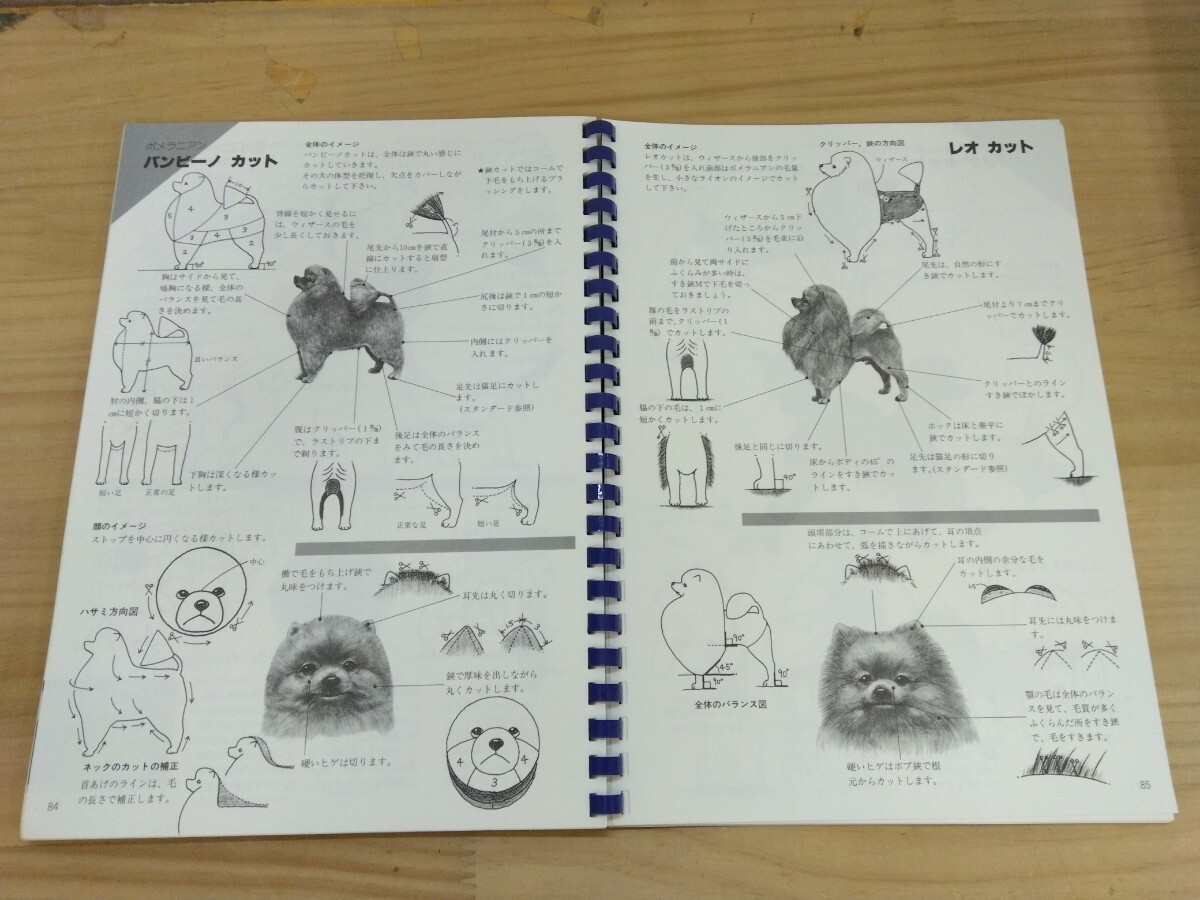 ポメラニアン
バンビーノ カット
全体のイメージ
バンビーノカットは、全体は鋏で丸い感じに
カットしていきます。
その犬の体型を把握し、欠点をカバーしなが
らカットして下さい。
★鋏カットではコームで
下毛をもち上げるブラ
ッシングをします。
背線を短かく見せるに
は、ウィザースの毛を
少し長くしておきます。
尾先から10cmを鋏で直
線にカットすると扇型
に仕上ります。
尾付から5cmの所まで
クリッパー(3㎜)を入
れます。
胸はサイドから見て、
鳩胸になる様、全体の
バランスを見て毛の長
さを決めます。
尻後は鋏で1cmの短か
さに切ります。
良いバランス
内側にはクリッパーを
入れます。
肘の内側、脇の下は1
cmに短かく切ります。
足先は猫足にカットし
ます。
(スタンダード参照)
腹はクリッパー(1㎜)
で、ラストリブの下ま
で剃ります。
後足は全体のバランス
をみて毛の長さを決め
ます。
下胸は深くなる様カッ
トします。
短い足
正常の足
正常な足
短い足
顔のイメージ
ストップを中心に円くなる様カットします。
中心
ハサミ方向図
櫛で毛をもち上げ鋏で
丸味をつけます。
耳先は丸く切ります。
鋏で厚味を出しながら
丸くカットします。
硬いヒゲは切ります。
4
4
3
ネックのカットの補正
首あげのラインは、毛
の長さで補正します。
84
レオ カット
全体のイメージ
レオカットは、ウィザースから後部をクリッ
パー(3㎜)を入れ前部はポメラニアンの毛量
を生し、小さなライオンのイメージでカット
して下さい。
クリッパー、鋏の方向図
ウィザース
ウィザースから5cm下
げたところからクリッ
パー(3㎜)を毛並に沿
り入れます。
前から見て両サイドに
ふくらみが多い時は、
すき鋏Mで下毛を切っ
ておきましょう。
尾先は、自然の形にす
き鋏でカットします。
腹の毛をラストリブの
前まで、クリッパー(1
㎜)でカットします。
尾付より7cmまでクリ
ッパーでカットします。
クリッパーとのライン
すき鋏でぼかします。
脇の下の毛は、1cmに
短かくカットします。
ホックは床と垂平に
鋏でカットします。
後足と同じに切ります。
床からボディの45°の
ラインをすき鋏でカッ
トします。
足先は猫足の形に切り
ます。(スタンダード参照)
90°
頭頂部分は、コームで上にあげて、耳の頂点
にあわせて、弧を描きながらカットします。
耳の内側の余分な毛を
カットします。
耳先には丸味をつけま
す。
90°
45°
90°
90°
全体のバランス図
顎の毛は全体のバラン
スを見て、毛質が多く
ふくらんだ所をすき鋏
で、毛をすきます。
硬いヒゲはボブ鋏で根
元からカットします。
85